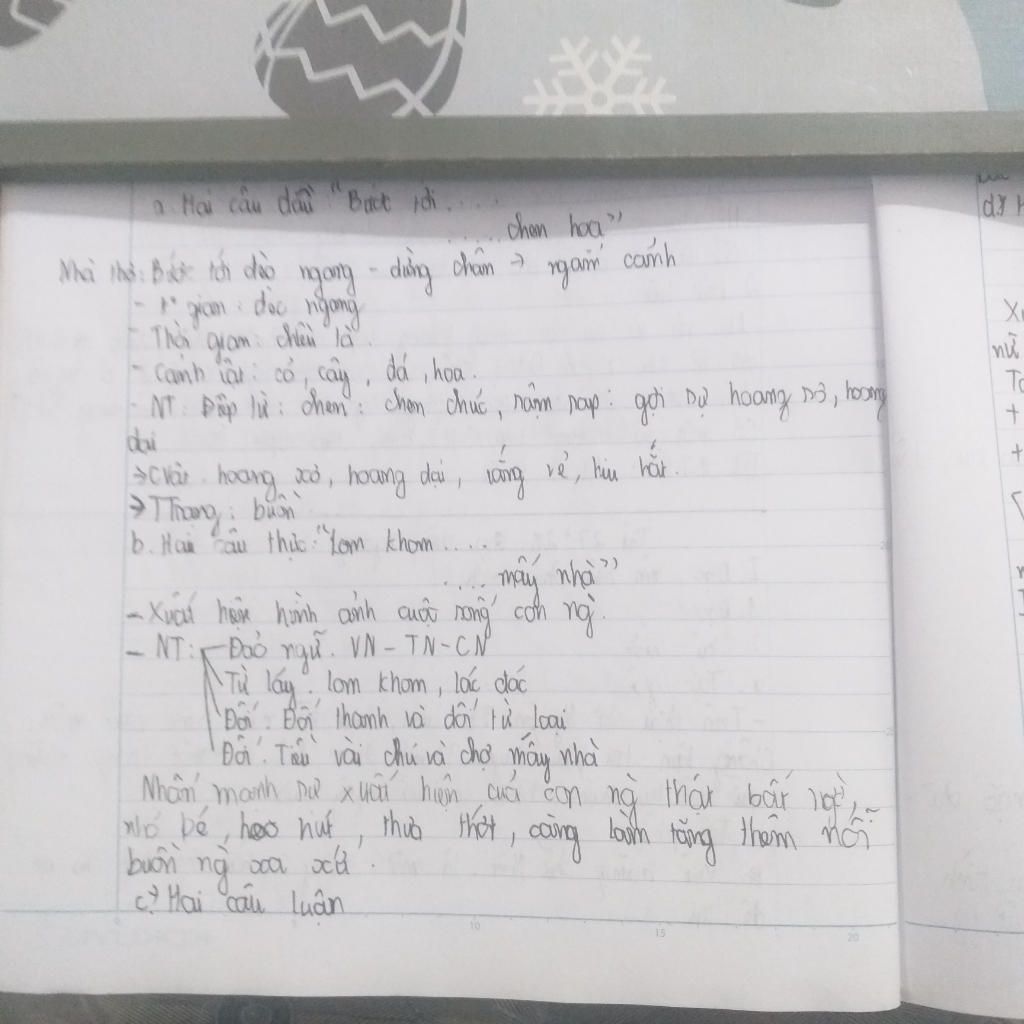 a. Hai câu đầu "Bước tới....
..... chen hoa"
Nhà thơ: Bước tới đèo ngang - dừng chân → ngắm cảnh
- gian: đèo ngang
- Thời gian: chiều tà.
- Cảnh vật: cỏ, cây, đá, hoa.
- NT: Điệp từ: chen: chen chúc, rậm rạp: gợi sự hoang sơ, hoang
dại
→ CVật: hoang sơ, hoang dại, vắng vẻ, hiu hắt.
→ TTrạng: buồn
b. Hai câu thực: "Lom khom....
.... mấy nhà"
- Xuất hiện hình ảnh cuộc sống con ng.
- NT: Đảo ngữ. VN - TN - CN
Từ láy. lom khom, lác đác
Đối: Đối thanh và đối từ loại
Đối: Tiều vài chú và chợ mấy nhà
Nhấn mạnh sự xuất hiện của con ng thật bất
nhỏ bé, heo hút, thưa thớt, càng làm tăng thêm nỗi
buồn ng xa xứ.
c) Hai câu luận
10 15 20